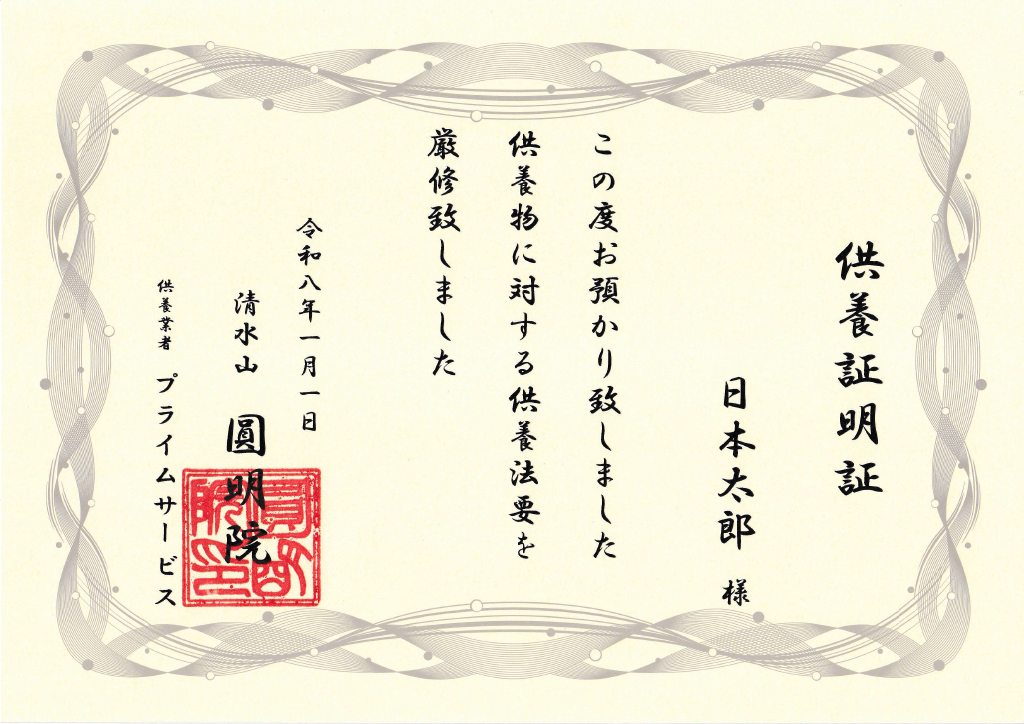 供養証明証
日本太郎 様
この度お預かり致しました
供養物に対する供養法要を
厳修致しました
令和八年一月一日
清水山 圓明院
圓明院印
供養業者 プライムサービス